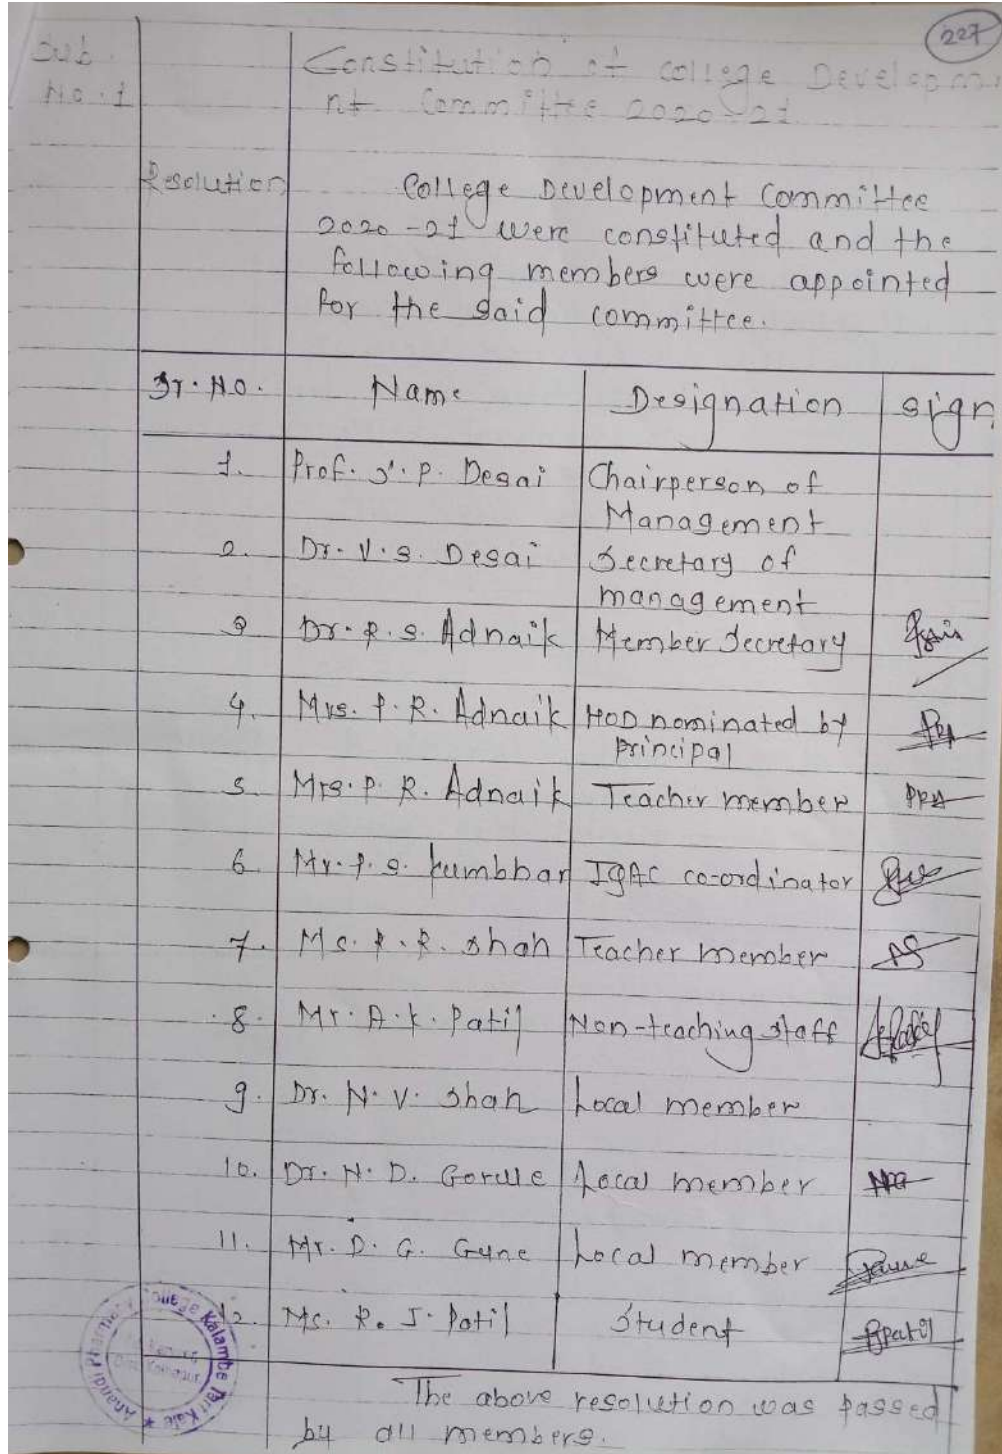 227
Sub. No. 1
Constitution of College Developme
nt Committee 2020-21
Resolution
College Development Committee
2020-21 were constituted and the
following members were appointed
for the said committee.
Sr. No. Name Designation sign
1. Prof. S. P. Desai Chairperson of
Management
2. Dr. V. S. Desai Secretary of
management
3 Dr. R. S. Adnaik Member Secretary
4. Mrs. P. R. Adnaik HOD nominated by
principal
5. Mrs. P. R. Adnaik Teacher member PRA
6. Mr. P. S. Kumbhar IQAC co-ordinator
7. Ms. R. R. Shah Teacher member
8. Mr. A. K. Patil Non-teaching staff
9. Dr. N. V. Shah Local member
10. Dr. N. D. Local member
11. Mr. D. G. Gune Local member
12. Ms. R. J. Patil Student RPatil
The above resolution was passed
by all members.
Anandi Pharmacy College Kalambe Tarf Kale